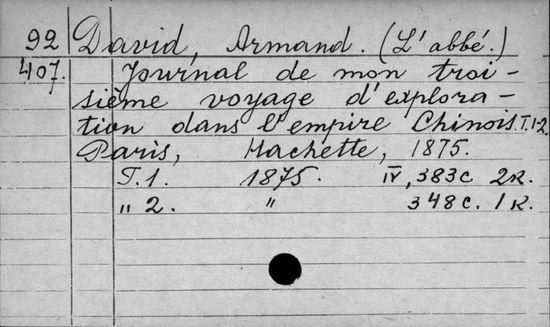 92 David, Armand. (L'abbé.)
407. Journal de mon troi-
sième voyage d'explora-
tion dans l'empire Chinois. T. 1-2.
Paris, Hachette, 1875.
T. 1. 1875. IV, 383 c 2 к.
" 2. " 348 c. 1 к.